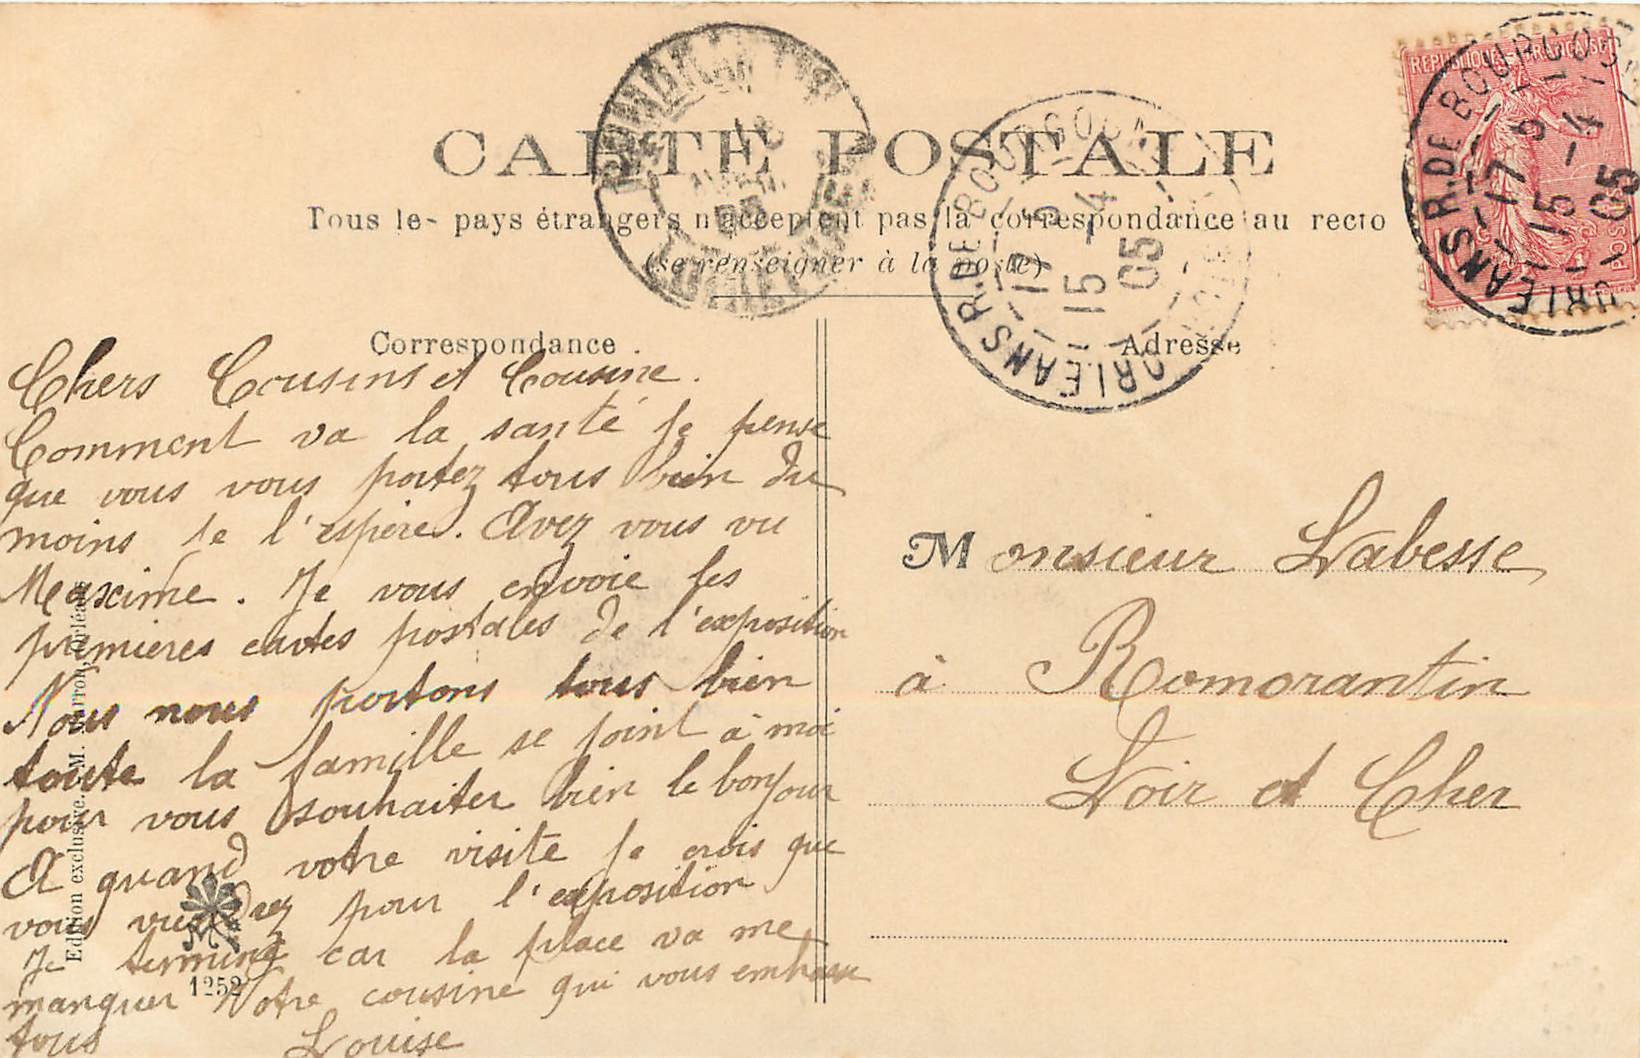 CARTE POSTALE
Tous les pays étrangers n'acceptent pas la correspondance au recto
(se renseigner à la poste)
REPUBLIQUE FRANÇAISE
ORLEANS R. DE BOURGOGNE
17 15
15 -4
05
ORLEANS R. DE BOURGOGNE
15 -4
05
Correspondance
Chers Cousins et Cousine.
Comment va la santé je pense
que vous vous portez tous bien du
moins je l'espère. Avez vous vu
Maxime. Je vous envoie les
premieres cartes postales de l'exposition
Nous nous portons tous bien
toute la famille se joint à moi
pour vous souhaiter bien le bonjour
A quand votre visite je crois que
vous viendrez pour l'exposition
Je termine car la place va me
manquer Votre cousine qui vous embrasse
tous Louise
Adresse
Monsieur Labesse
à Romorantin
Loir et Cher
Edition exclusive. M. Marron, Orléans
1252